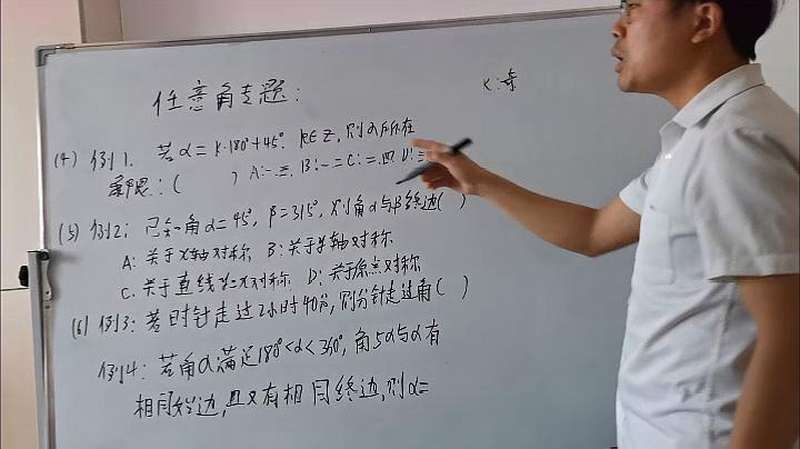 任意角专题:
K:奇
(4) 例1. 若α=K·180°+45°. K∈Z, 则α所在
象限:( ) A:一.三. B:一二 C:二.四 D:三
(5) 例2: 已知角α=45°, β=315°, 则角α与β终边( )
A: 关于x轴对称 B: 关于y轴对称
C. 关于直线y=x对称 D: 关于原点对称
(6) 例3: 若时针走过2小时40分, 则分针走过角( )
例4: 若角α满足180°<α<360°, 角5α与α有
相同始边, 且又有相同终边, 则α=